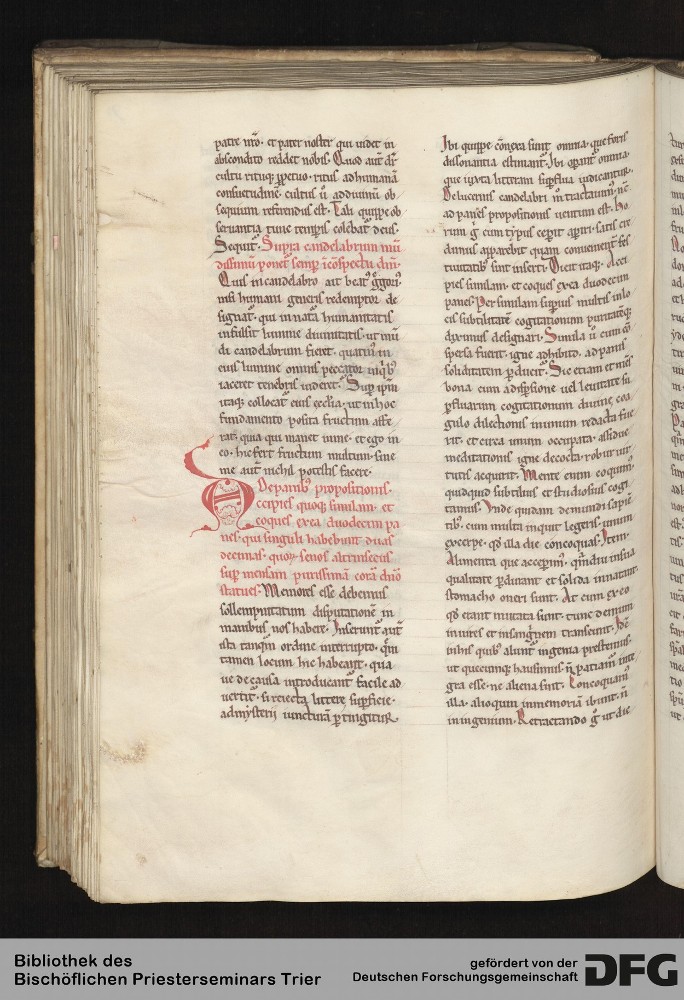 patre nr̄o · et pater noster qui uidet in
abscondito reddet nobis · Quod aut̄ dr̄
cultu rituq; ꝑpetuo · ritus ad humanā
consuetudinē · cultus ū ad diuinū ob
sequium referendus est · Tali quippe ob
seruantia tunc temporis colebat᷑ deus ·
Sequit᷑ · Supra candelabrum mū
dissimū ponent᷑ semp̄ ī cōspectu dn̄i ·
Quis in candelabro ait beat᷒ g̊gori᷒
nisi humani generis redemptor de
signat᷑ · qui in nat̄a humanitatis
infulsit lumine diuinitatis · ut mū
di candelabrum fieret · quatin᷒ in
eius lumine omnis peccator in q̇b᷒
iaceret tenebris uideret · Sup̄ ip̄m
itaq; collocat᷑ eius ecclia · ut in hoc
fundamento posita fructum affe
rat · quia qui manet in me · et ego in
eo · hic fert fructum multum · sine
me aut̄ nichil potestis facere ·
De panib᷒ propositionis ·
Accipies quoq; similam · et
coques ex ea duodecim pa
nes · qui singuli habebunt duas
decimas · quoꝝ senos altrinsecus
sup̄ mensam purissimā corā dn̄o
statues · Memores esse debemus
sollempnitatum disputationē in
manibus nos habere · Inserunt᷑ aut̄
ista tanq̄m ordine interrupto · q̄m
tamen locum hic habeant · qua
ue de causa introducant᷑ facile ad
uertit᷑ · si reiecta littere sup̄ficie ·
ad mysterii iuncturā ꝑtingitur ·
Ibi quippe cōnexa sunt omnia · que foris
dissonantia estimant᷑ · Ibi opant᷑ omnia ·
que iuxta litteram sup̄flua iudicantur ·
De lucernis candelabri
ad panēs propositionis uentum est · Ho
rum g̊ cum typus cep̄it apiri · satis cre
dimus apparebit quam conuenient᷑ fes
tiuitatib᷒ sint inserti · Dicit itaq; · Acci
pies similam · et coques ex ea duodecim
panes · Per similam sup̄ius multis in lo
cis subtilitatē cogitationum puritatēq;
diximus designari · Simila ū cum cō
spersa fuerit · igne adhibito · ad panis
soliditatem ꝑducit᷑ · Sic etiam et mēs
bona cum adspersione uel leuitate su
perfluarum cogitationum diuine coa
gulo dilectionis in unum redacta fue
rit · et circa unum occupata · assidue
meditationis igne decocta · robur uir
tutis acquirit · Mente enim coquim᷒
quidquid subtilius et studiosius cogi
tamus · Unde quidam de mundi sapiē
tib᷒ · cum multa inquit legeris · unum
excerpe · qd̄ illa die concoquas · Item ·
Alimenta que accepim᷒ · q̄mdiu in sua
qualitate ꝑdurant et solida innatant
stomacho oneri sunt · At cum ex eo
qd̄ erant mutata sunt · tunc demum
in uires et in sanguinem transeunt · Idē
in his quib᷒ alunt᷑ ingenia prestemus ·
ut quecumq; hausimus · n̄ patiam᷑ inte
gra esse · ne aliena sint · Concoquam᷒
illa · alioquin in memoriā ibunt · n̄
in ingenium · Retractando g̊ ut die
Bibliothek des
Bischöflichen Priesterseminars Trier
gefördert von der
Deutschen Forschungsgemeinschaft
DFG